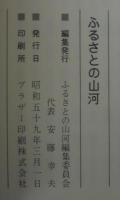 ふるさとの山河
■編集発行 ふるさとの山河編集委員会
代表 安藤幸夫
■発行日 昭和五十九年三月一日
■印刷所 ブラザー印刷株式会社